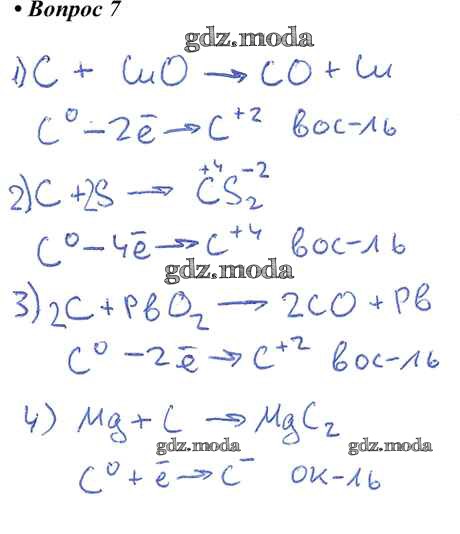 • Вопрос 7
gdz.moda
1) C + CuO → CO + Cu
C⁰ – 2ē → C⁺² вос-ль
2) C + 2S → C⁺⁴S₂⁻²
C⁰ – 4ē → C⁺⁴ вос-ль
gdz.moda
3) 2C + PbO₂ → 2CO + Pb
C⁰ – 2ē → C⁺² вос-ль
4) Mg + C → MgC₂
gdz.moda gdz.moda
C⁰ + ē → C⁻ ок-ль